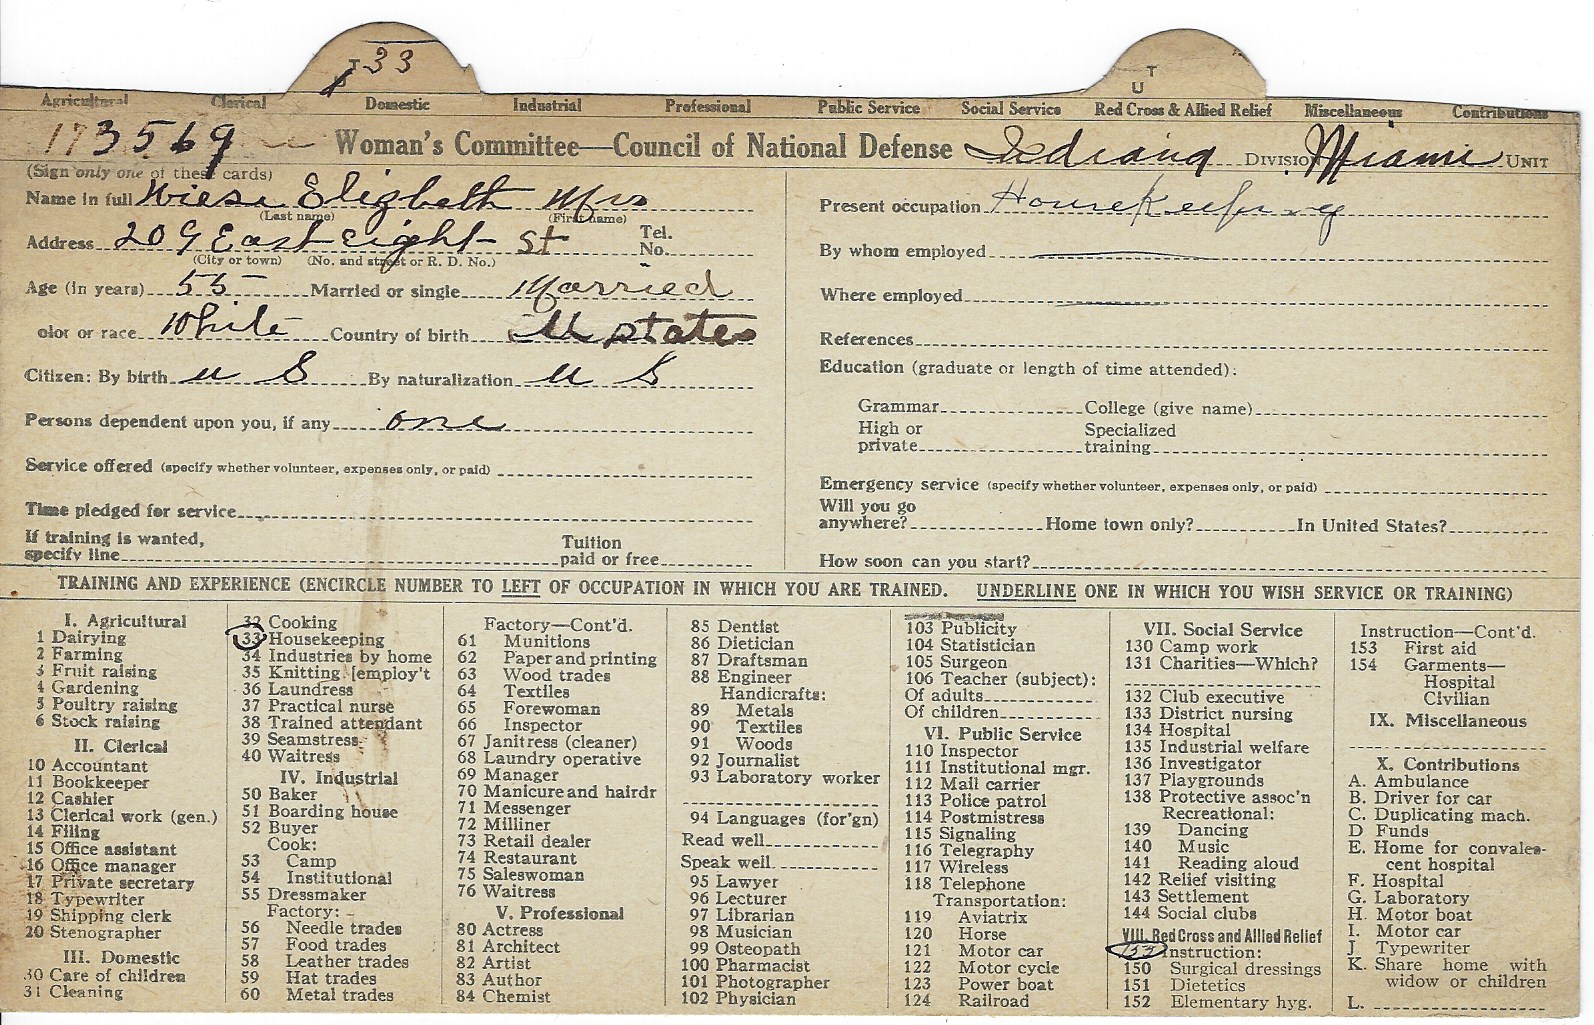 T 33
T
U
Agricultural Clerical Domestic Industrial Professional Public Service Social Service Red Cross & Allied Relief Miscellaneous Contributions
173569 Woman's Committee—Council of National Defense Indiana DIVISION Miami UNIT
(Sign only one of these cards)
Name in full Wiese Elizabeth Mrs
(Last name) (First name)
Address 209 East eight St Tel. No.
(City or town) (No. and street or R. D. No.)
Age (in years) 55 Married or single Married
olor or race White Country of birth U states
Citizen: By birth U S By naturalization U S
Persons dependent upon you, if any one
Service offered (specify whether volunteer, expenses only, or paid)
Time pledged for service
If training is wanted,
specify line Tuition
paid or free
Present occupation Housekeeping
By whom employed
Where employed
References
Education (graduate or length of time attended):
Grammar College (give name)
High or
private Specialized
training
Emergency service (specify whether volunteer, expenses only, or paid)
Will you go
anywhere? Home town only? In United States?
How soon can you start?
TRAINING AND EXPERIENCE (ENCIRCLE NUMBER TO LEFT OF OCCUPATION IN WHICH YOU ARE TRAINED. UNDERLINE ONE IN WHICH YOU WISH SERVICE OR TRAINING)
I. Agricultural
1 Dairying
2 Farming
3 Fruit raising
4 Gardening
5 Poultry raising
6 Stock raising
II. Clerical
10 Accountant
11 Bookkeeper
12 Cashier
13 Clerical work (gen.)
14 Filing
15 Office assistant
16 Office manager
17 Private secretary
18 Typewriter
19 Shipping clerk
20 Stenographer
III. Domestic
30 Care of children
31 Cleaning
32 Cooking
33 Housekeeping
34 Industries by home
35 Knitting [employ't
36 Laundress
37 Practical nurse
38 Trained attendant
39 Seamstress
40 Waitress
IV. Industrial
50 Baker
51 Boarding house
52 Buyer
Cook:
53 Camp
54 Institutional
55 Dressmaker
Factory:
56 Needle trades
57 Food trades
58 Leather trades
59 Hat trades
60 Metal trades
Factory—Cont'd.
61 Munitions
62 Paper and printing
63 Wood trades
64 Textiles
65 Forewoman
66 Inspector
67 Janitress (cleaner)
68 Laundry operative
69 Manager
70 Manicure and hairdr
71 Messenger
72 Milliner
73 Retail dealer
74 Restaurant
75 Saleswoman
76 Waitress
V. Professional
80 Actress
81 Architect
82 Artist
83 Author
84 Chemist
85 Dentist
86 Dietician
87 Draftsman
88 Engineer
Handicrafts:
89 Metals
90 Textiles
91 Woods
92 Journalist
93 Laboratory worker
94 Languages (for'gn)
Read well
Speak well
95 Lawyer
96 Lecturer
97 Librarian
98 Musician
99 Osteopath
100 Pharmacist
101 Photographer
102 Physician
103 Publicity
104 Statistician
105 Surgeon
106 Teacher (subject):
Of adults
Of children
VI. Public Service
110 Inspector
111 Institutional mgr.
112 Mail carrier
113 Police patrol
114 Postmistress
115 Signaling
116 Telegraphy
117 Wireless
118 Telephone
Transportation:
119 Aviatrix
120 Horse
121 Motor car
122 Motor cycle
123 Power boat
124 Railroad
VII. Social Service
130 Camp work
131 Charities—Which?
132 Club executive
133 District nursing
134 Hospital
135 Industrial welfare
136 Investigator
137 Playgrounds
138 Protective assoc'n
Recreational:
139 Dancing
140 Music
141 Reading aloud
142 Relief visiting
143 Settlement
144 Social clubs
VIII. Red Cross and Allied Relief
153 Instruction:
150 Surgical dressings
151 Dietetics
152 Elementary hyg.
Instruction—Cont'd.
153 First aid
154 Garments—
Hospital
Civilian
IX. Miscellaneous
X. Contributions
A. Ambulance
B. Driver for car
C. Duplicating mach.
D Funds
E. Home for convales-
cent hospital
F. Hospital
G. Laboratory
H. Motor boat
I. Motor car
J. Typewriter
K. Share home with
widow or children
L.